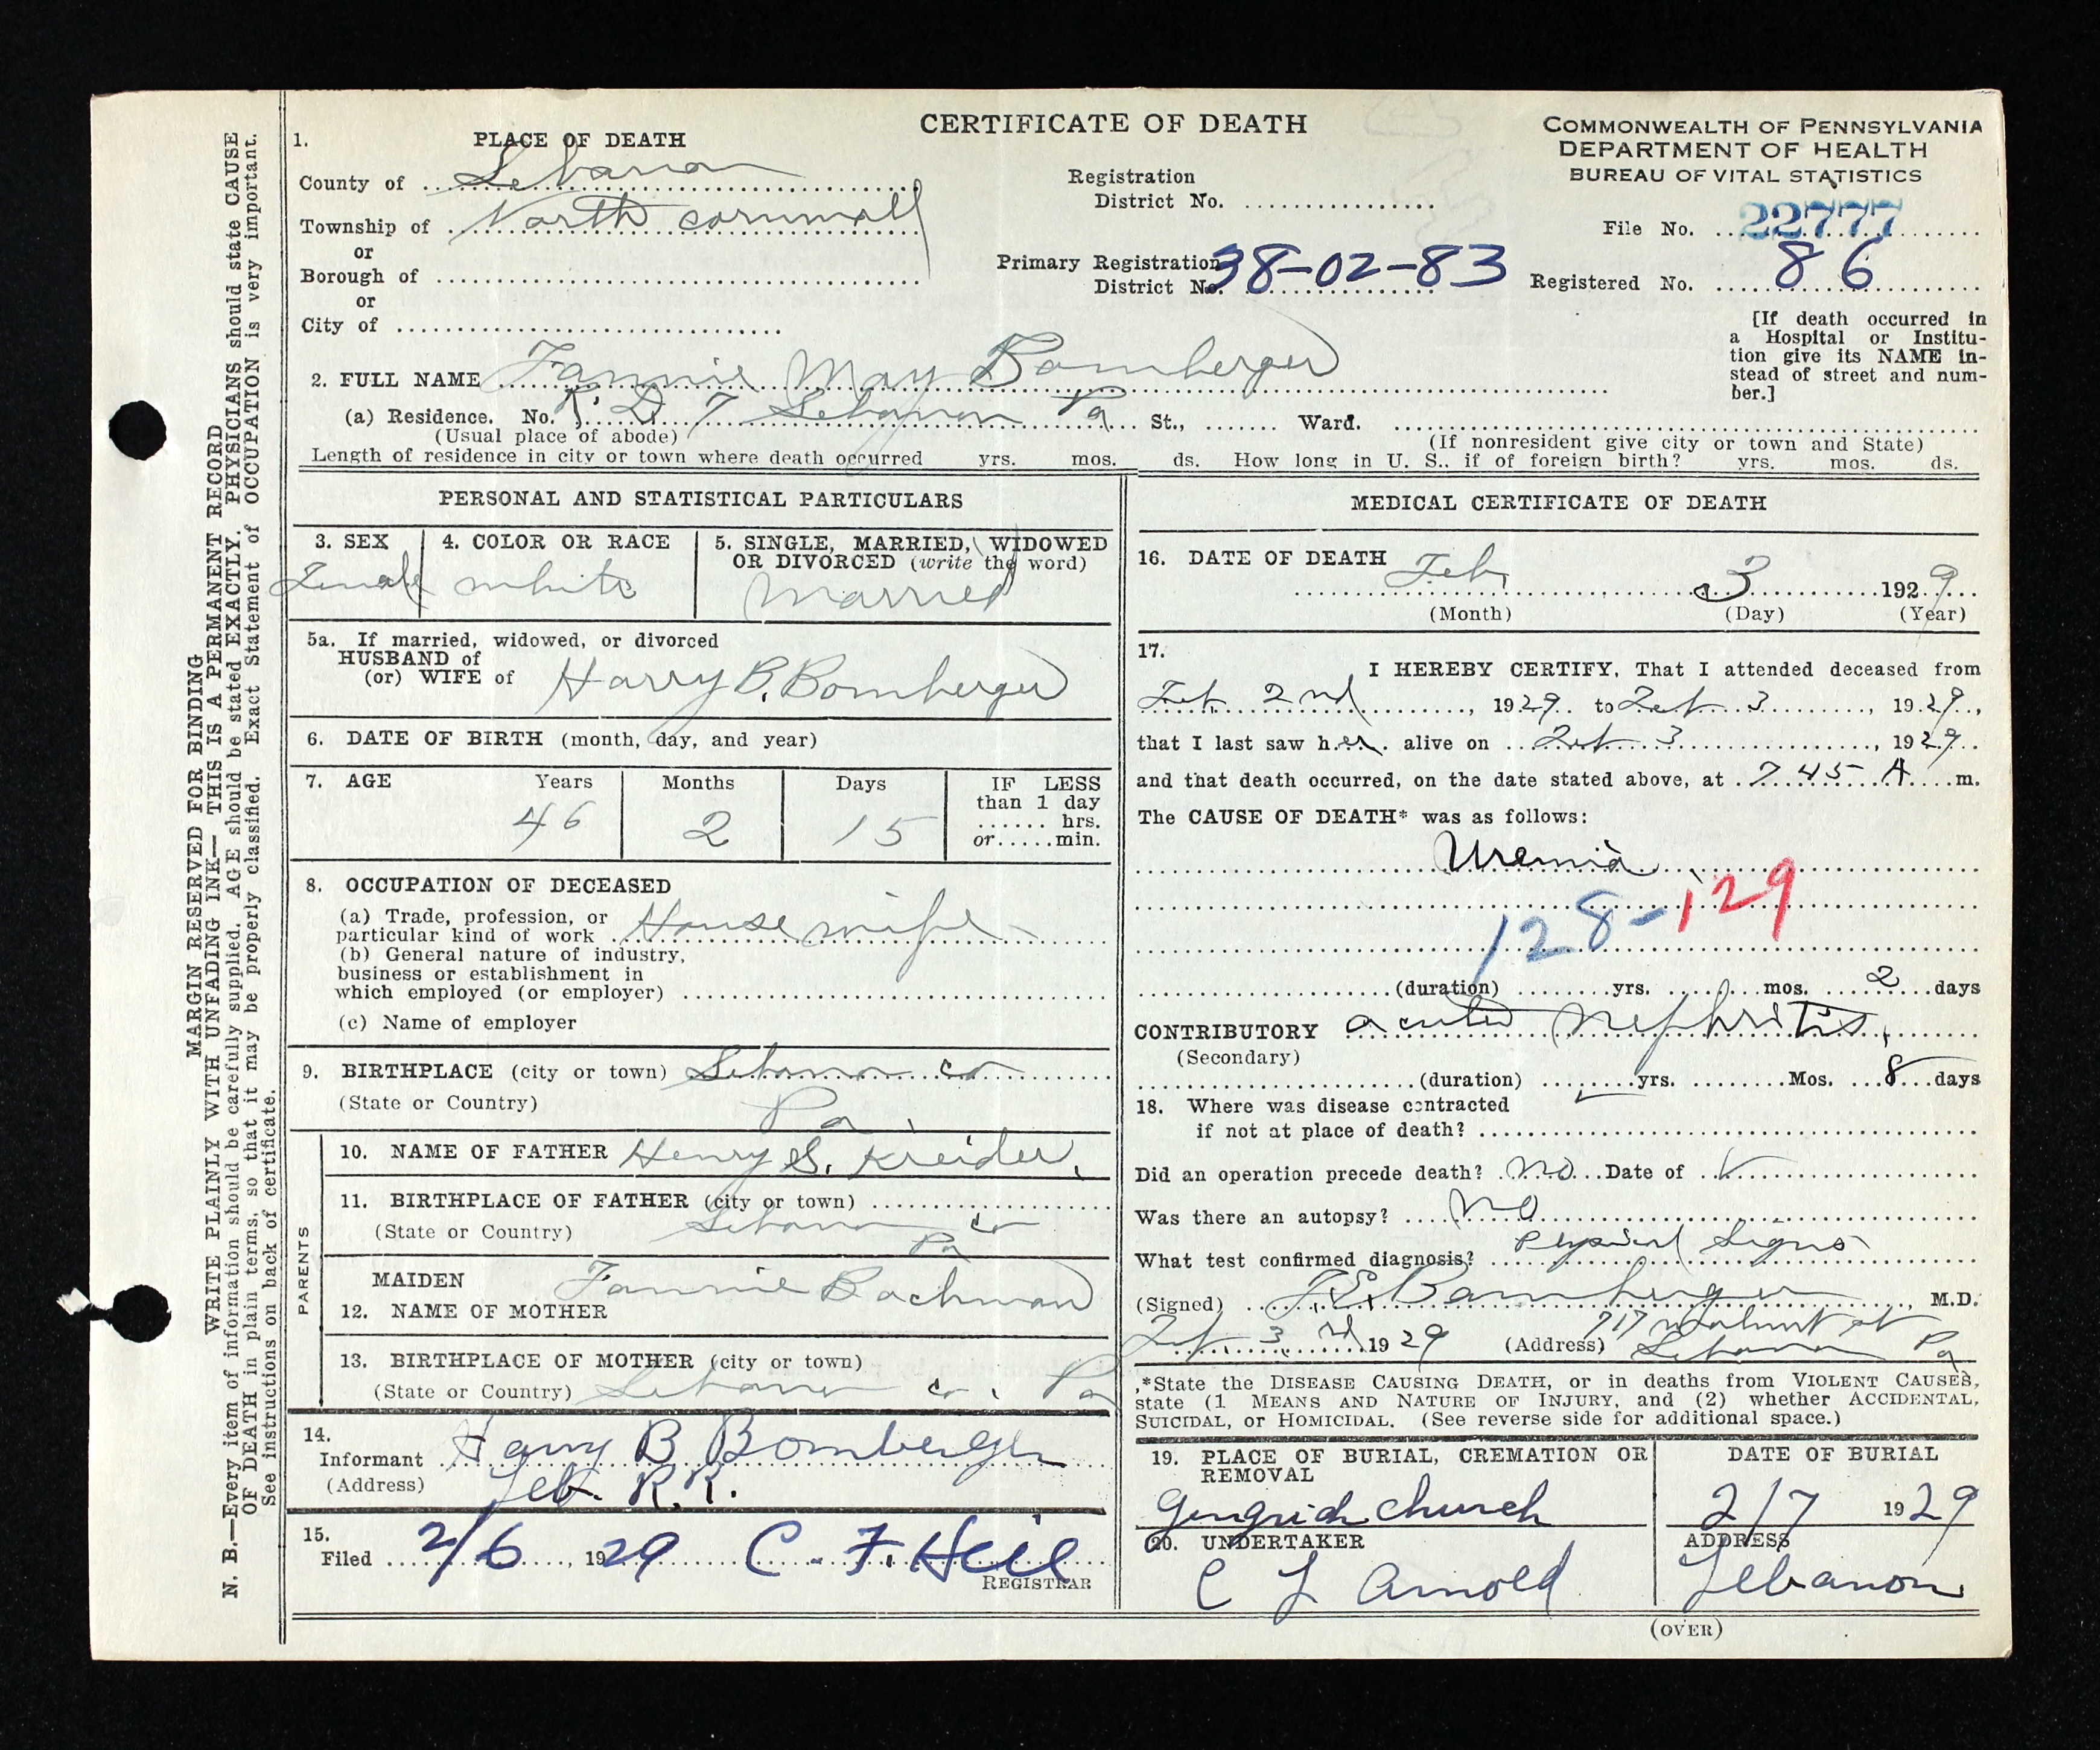 MARGIN RESERVED FOR BINDING
WRITE PLAINLY WITH UNFADING INK— THIS IS A PERMANENT RECORD
N. B.—Every item of information should be carefully supplied. AGE should be stated EXACTLY. PHYSICIANS should state CAUSE
OF DEATH in plain terms, so that it may be properly classified. Exact Statement of OCCUPATION is very important.
See instructions on back of certificate.
CERTIFICATE OF DEATH
COMMONWEALTH OF PENNSYLVANIA
DEPARTMENT OF HEALTH
BUREAU OF VITAL STATISTICS
1. PLACE OF DEATH
County of Lebanon
Township of North Cornwall
or
Borough of
or
City of
Registration
District No.
Primary Registration
District No. 38-02-83
File No. 22777
Registered No. 86
[If death occurred in
a Hospital or Institu-
tion give its NAME in-
stead of street and num-
ber.]
2. FULL NAME Fannie May Bomberger
(a) Residence. No. R. D. 7 Lebanon Pa St., Ward.
(Usual place of abode)
(If nonresident give city or town and State)
Length of residence in city or town where death occurred yrs. mos. ds. How long in U. S., if of foreign birth? yrs. mos. ds.
PERSONAL AND STATISTICAL PARTICULARS
3. SEX
Female
4. COLOR OR RACE
White
5. SINGLE, MARRIED, WIDOWED
OR DIVORCED (write the word)
Married
5a. If married, widowed, or divorced
HUSBAND of
(or) WIFE of Harry B. Bomberger
6. DATE OF BIRTH (month, day, and year)
7. AGE Years Months Days
46 2 15
IF LESS
than 1 day
hrs.
or min.
8. OCCUPATION OF DECEASED
(a) Trade, profession, or
particular kind of work House wife
(b) General nature of industry,
business or establishment in
which employed (or employer)
(c) Name of employer
9. BIRTHPLACE (city or town) Lebanon Co
(State or Country) Pa
PARENTS
10. NAME OF FATHER Henry S. Kreider.
11. BIRTHPLACE OF FATHER (city or town)
(State or Country) Lebanon Co
Pa
MAIDEN Fannie Bachman
12. NAME OF MOTHER
13. BIRTHPLACE OF MOTHER (city or town)
(State or Country) Lebanon Co. Pa
14.
Informant Harry B Bomberger
(Address) Leb. R.R.
15.
Filed 2/6, 1929 C. F. Heil
REGISTRAR
MEDICAL CERTIFICATE OF DEATH
16. DATE OF DEATH Feb. 3 1929
(Month) (Day) (Year)
17.
I HEREBY CERTIFY, That I attended deceased from
Feb 2nd, 1929 to Feb 3, 1929,
that I last saw her alive on Feb 3, 1929
and that death occurred, on the date stated above, at 7 45 A m.
The CAUSE OF DEATH* was as follows:
Uremia
128-129
(duration) yrs. mos. 2 days
CONTRIBUTORY acute Nephritis,
(Secondary)
(duration) yrs. Mos. 8 days
18. Where was disease contracted
if not at place of death?
Did an operation precede death? No Date of
Was there an autopsy? No
What test confirmed diagnosis? Physical Signs
(Signed) Bamberger, M.D.
Feb 3rd 1929 (Address) 717 Walnut st
Lebanon Pa
*State the DISEASE CAUSING DEATH, or in deaths from VIOLENT CAUSES,
state (1 MEANS AND NATURE OF INJURY, and (2) whether ACCIDENTAL,
SUICIDAL, or HOMICIDAL. (See reverse side for additional space.)
19. PLACE OF BURIAL, CREMATION OR
REMOVAL
Gingrich Church
DATE OF BURIAL
2/7 1929
20. UNDERTAKER
C L Arnold
ADDRESS
Lebanon
(OVER)